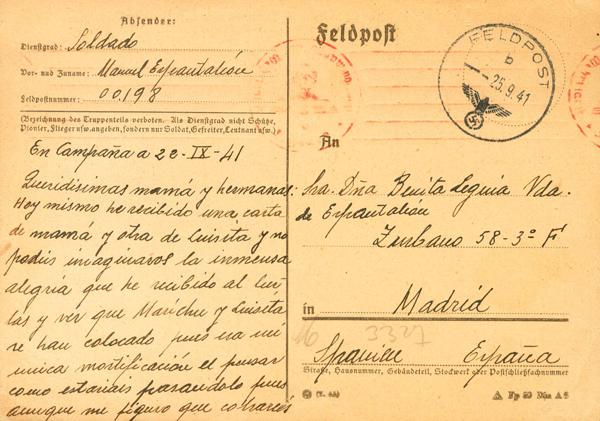 Absender:
Dienstgrad: Soldado
Vor- und Zuname: Manuel Espantaleón
Feldpostnummer: 00.198
(Bezeichnung des Truppenteils verboten. Als Dienstgrad nicht Schütze,
Pionier, Flieger usw. angeben, sondern nur Soldat, Gefreiter, Leutnant usw.)
En Campaña a 22-IX-41
Queridisimas mamá y hermanas:
Hoy mismo he recibido una carta
de mamá y otra de Luisita y no
podeis imaginaros la inmensa
alegria que he recibido al leer-
las y ver que Marichu y Luisita
se han colocado pues era mi
unica mortificación el pensar
como estariais pasandolo pues
aunque me figuro que cobrareis
Feldpost
FELDPOST
b
-25.9.41
An
Sra. Dña Benita Leguia Vda.
de Espantaleón
Zurbano 58-3º F
in Madrid
16 3327
Spanien España
Straße, Hausnummer, Gebäudeteil, Stockwerk oder Postschließfachnummer